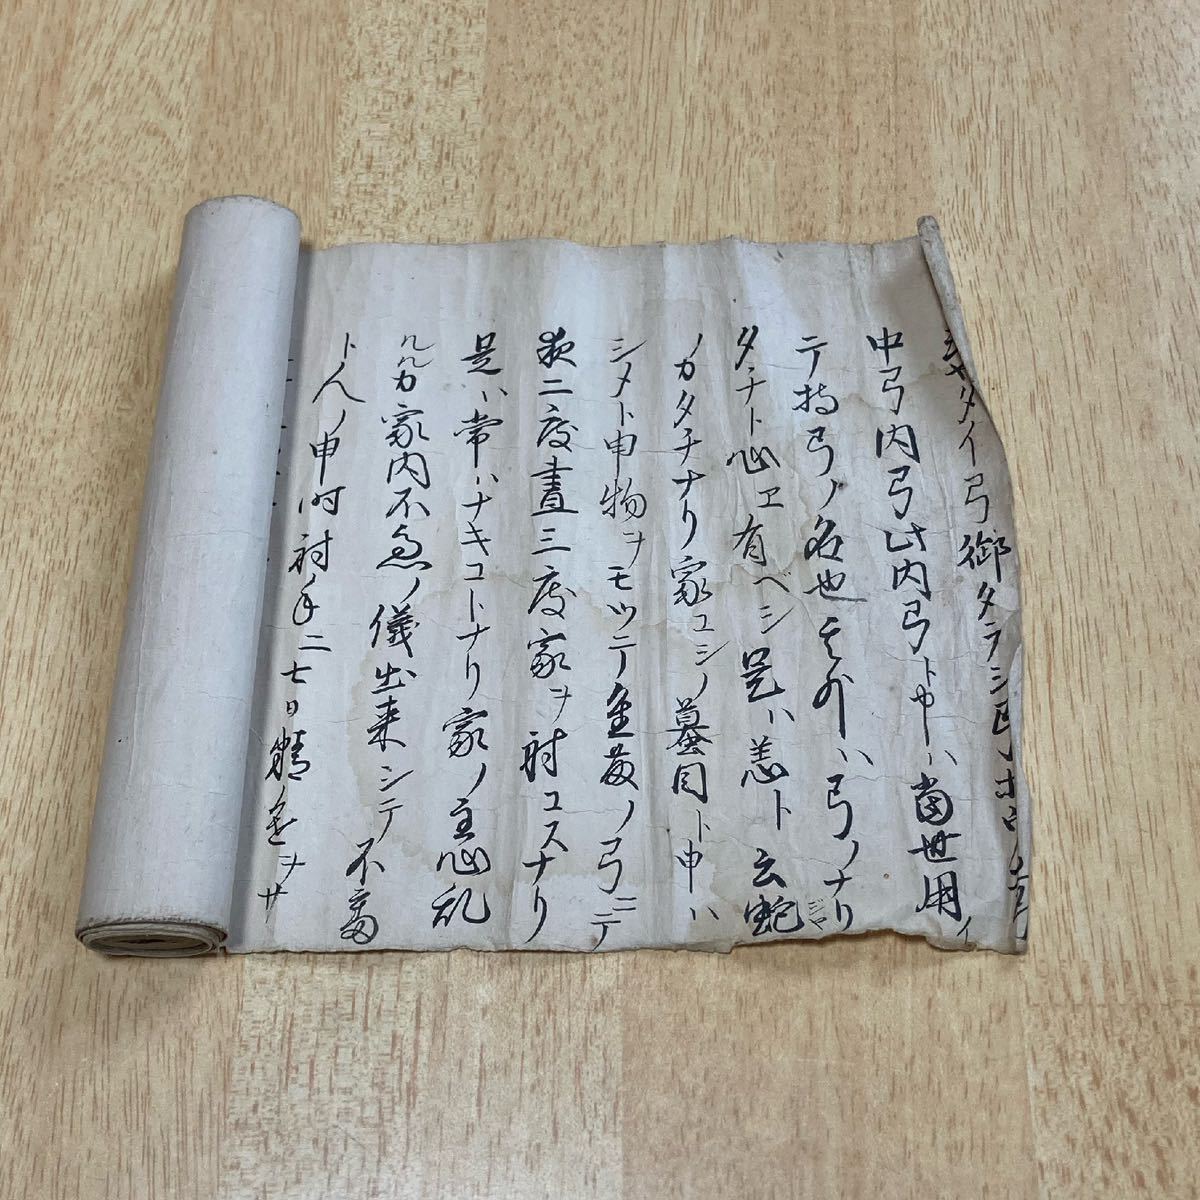 タイ弓御タラシ
中弓内弓此内弓ト申ハ当世用イ
テ持弓ノ名也其外ハ弓ノナリ
タチト心ヱ有ベシ是ハ恙ト云蛇
ノカタチナリ家コシノ蟇目ト申ハ
シメト申物ヲモツテ重藤ノ弓ニテ
夜二度昼三度家ヲ射コスナリ
是ハ常ハナキコトナリ家ノ主心乱
ルルカ家内不慮ノ儀出来シテ不審
ト人ノ申時射手二七日精進ヲサ